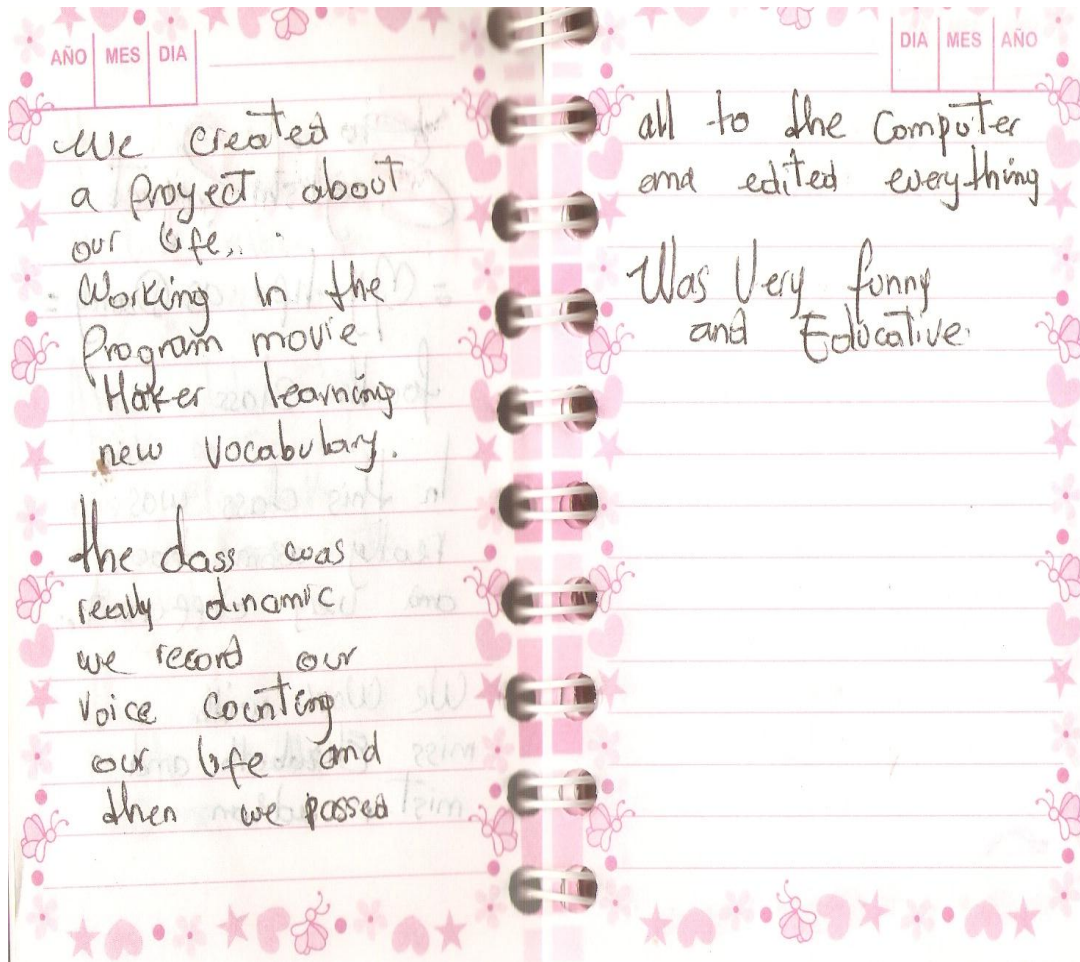 AÑO MES DIA
We created
a Proyect about
our life...
Working In the
Program movie
Maker learning
new vocabulary.
the class was
really dinamic
we record our
voice counting
our life and
then we passed
DIA MES AÑO
all to the Computer
and edited everything
Was Very funny
and Educative.